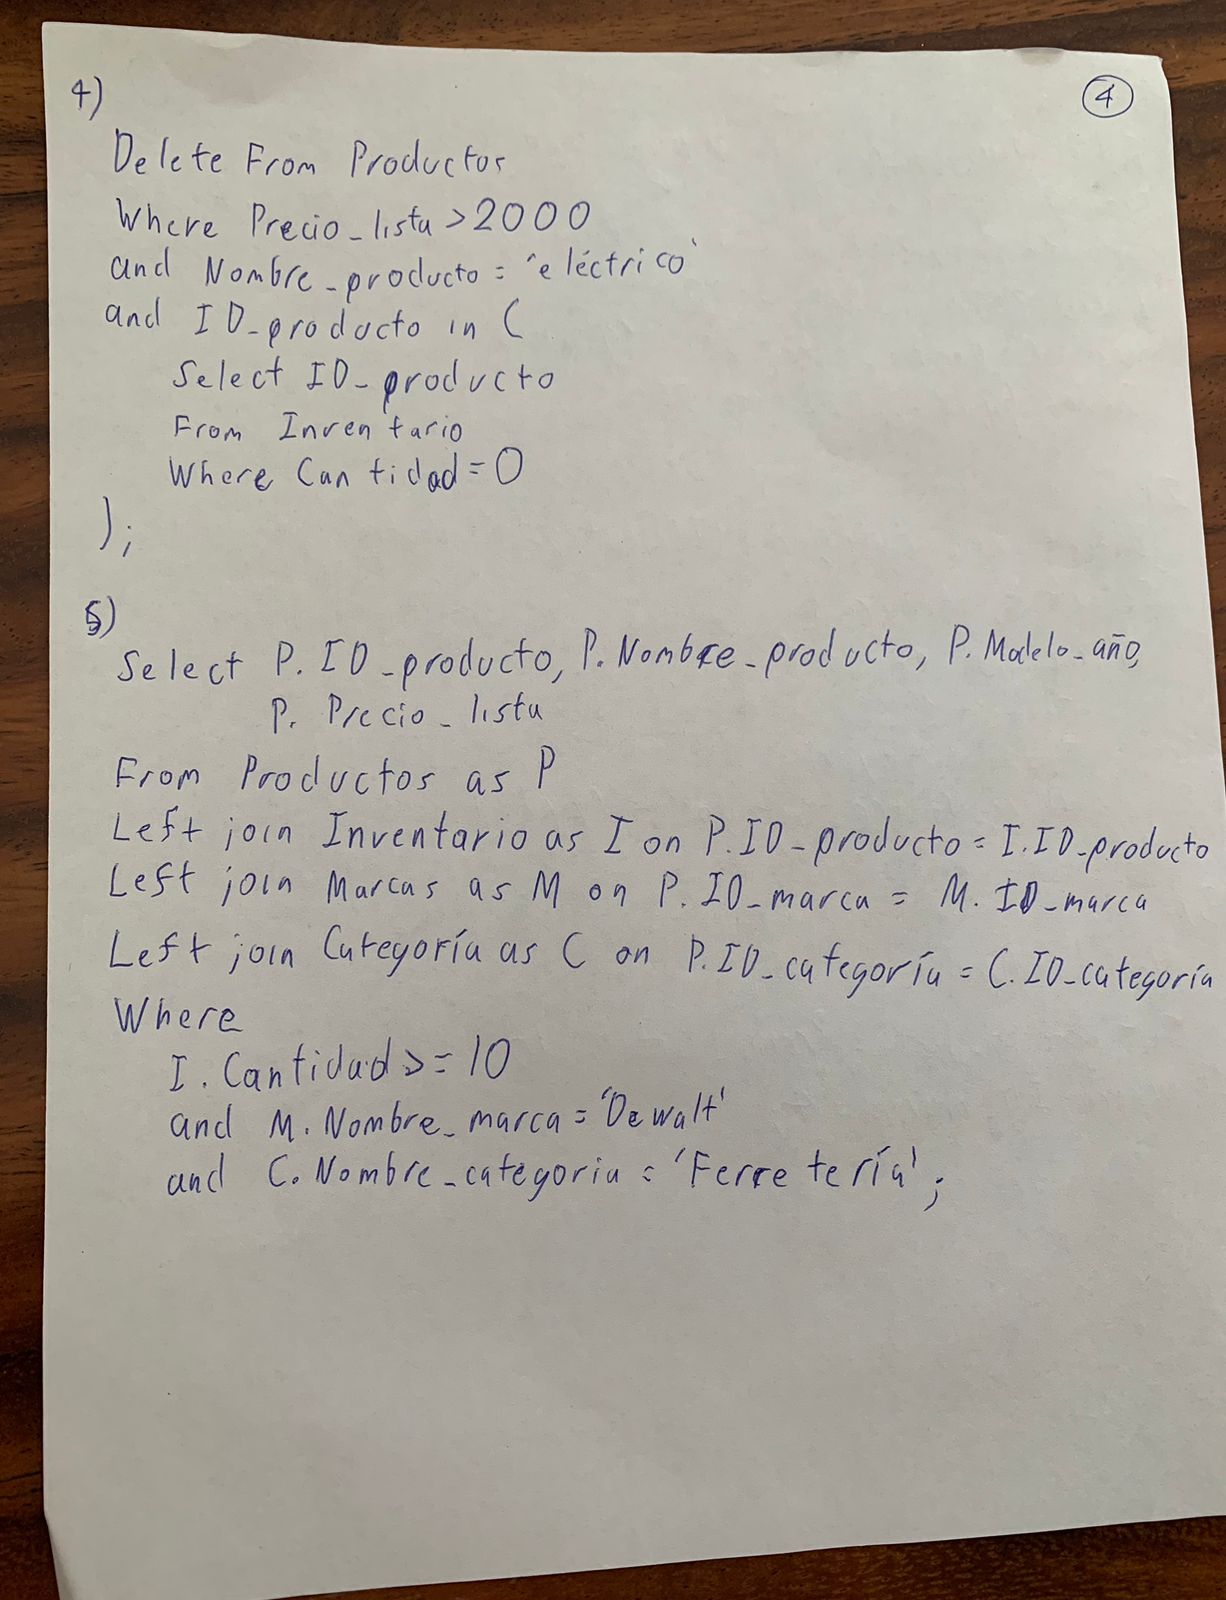 4)
4
Delete From Productos
Where Precio_lista > 2000
and Nombre_producto = 'eléctrico'
and ID_producto in (
Select ID_producto
From Inventario
Where Cantidad = 0
);
5)
Select P.ID_producto, P.Nombre_producto, P.Modelo_año,
P. Precio_lista
From Productos as P
Left join Inventario as I on P.ID_producto = I.ID_producto
Left join Marcas as M on P.ID_marca = M.ID_marca
Left join Categoría as C on P.ID_categoría = C.ID_categoría
Where
I.Cantidad >= 10
and M.Nombre_marca = 'Dewalt'
and C.Nombre_categoria = 'Ferretería';